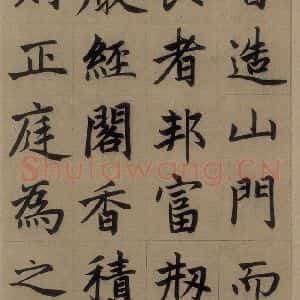 造山門而
者邦富刱
嚴經閣香積
正庭為之
Shufawang.CN